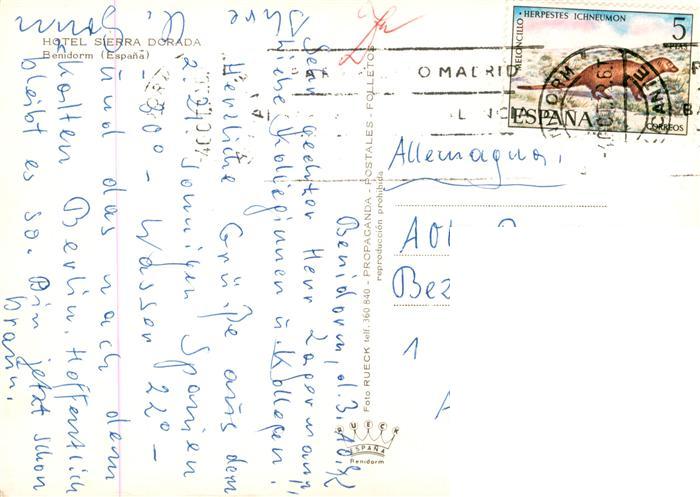 HOTEL SIERRA DORADA
Benidorm (España)
Benidorm, d. 3.
Sehr geehrter Herr Lagermann,
liebe Kolleginnen u. Kollegen!
Herzliche Grüße aus dem
z. Zt. sonnigen Spanien
- Wasser 22° -
Und das nach dem
kalten Berlin. Hoffentlich
bleibt es so. Bin jetzt schon
braun.
Ihre
Foto RUECK telf. 360 840 - PROPAGANDA - POSTALES - FOLLETOS
reproducción prohibida
RUECK
ESPAÑA
Benidorm
MELONCILLO · HERPESTES ICHNEUMON
5
PTAS
ESPAÑA
CORREOS
O MADRID
Allemagna,
Bez
1